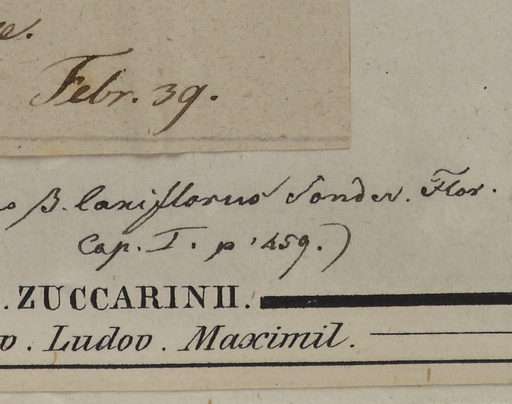 e.
Febr. 39.
o β. laxiflorus Sonder. Flor.
Cap. I. p. 459.)
. ZUCCARINII.
v. Ludov. Maximil.